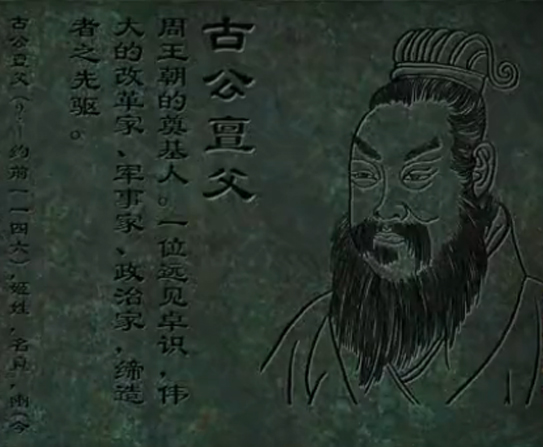 古公亶父
周王朝的奠基人。一位远见卓识，伟
大的改革家、军事家、政治家，缔造
者之先驱。
古公亶父（？—约前一一四六），姬姓，名亶，（今